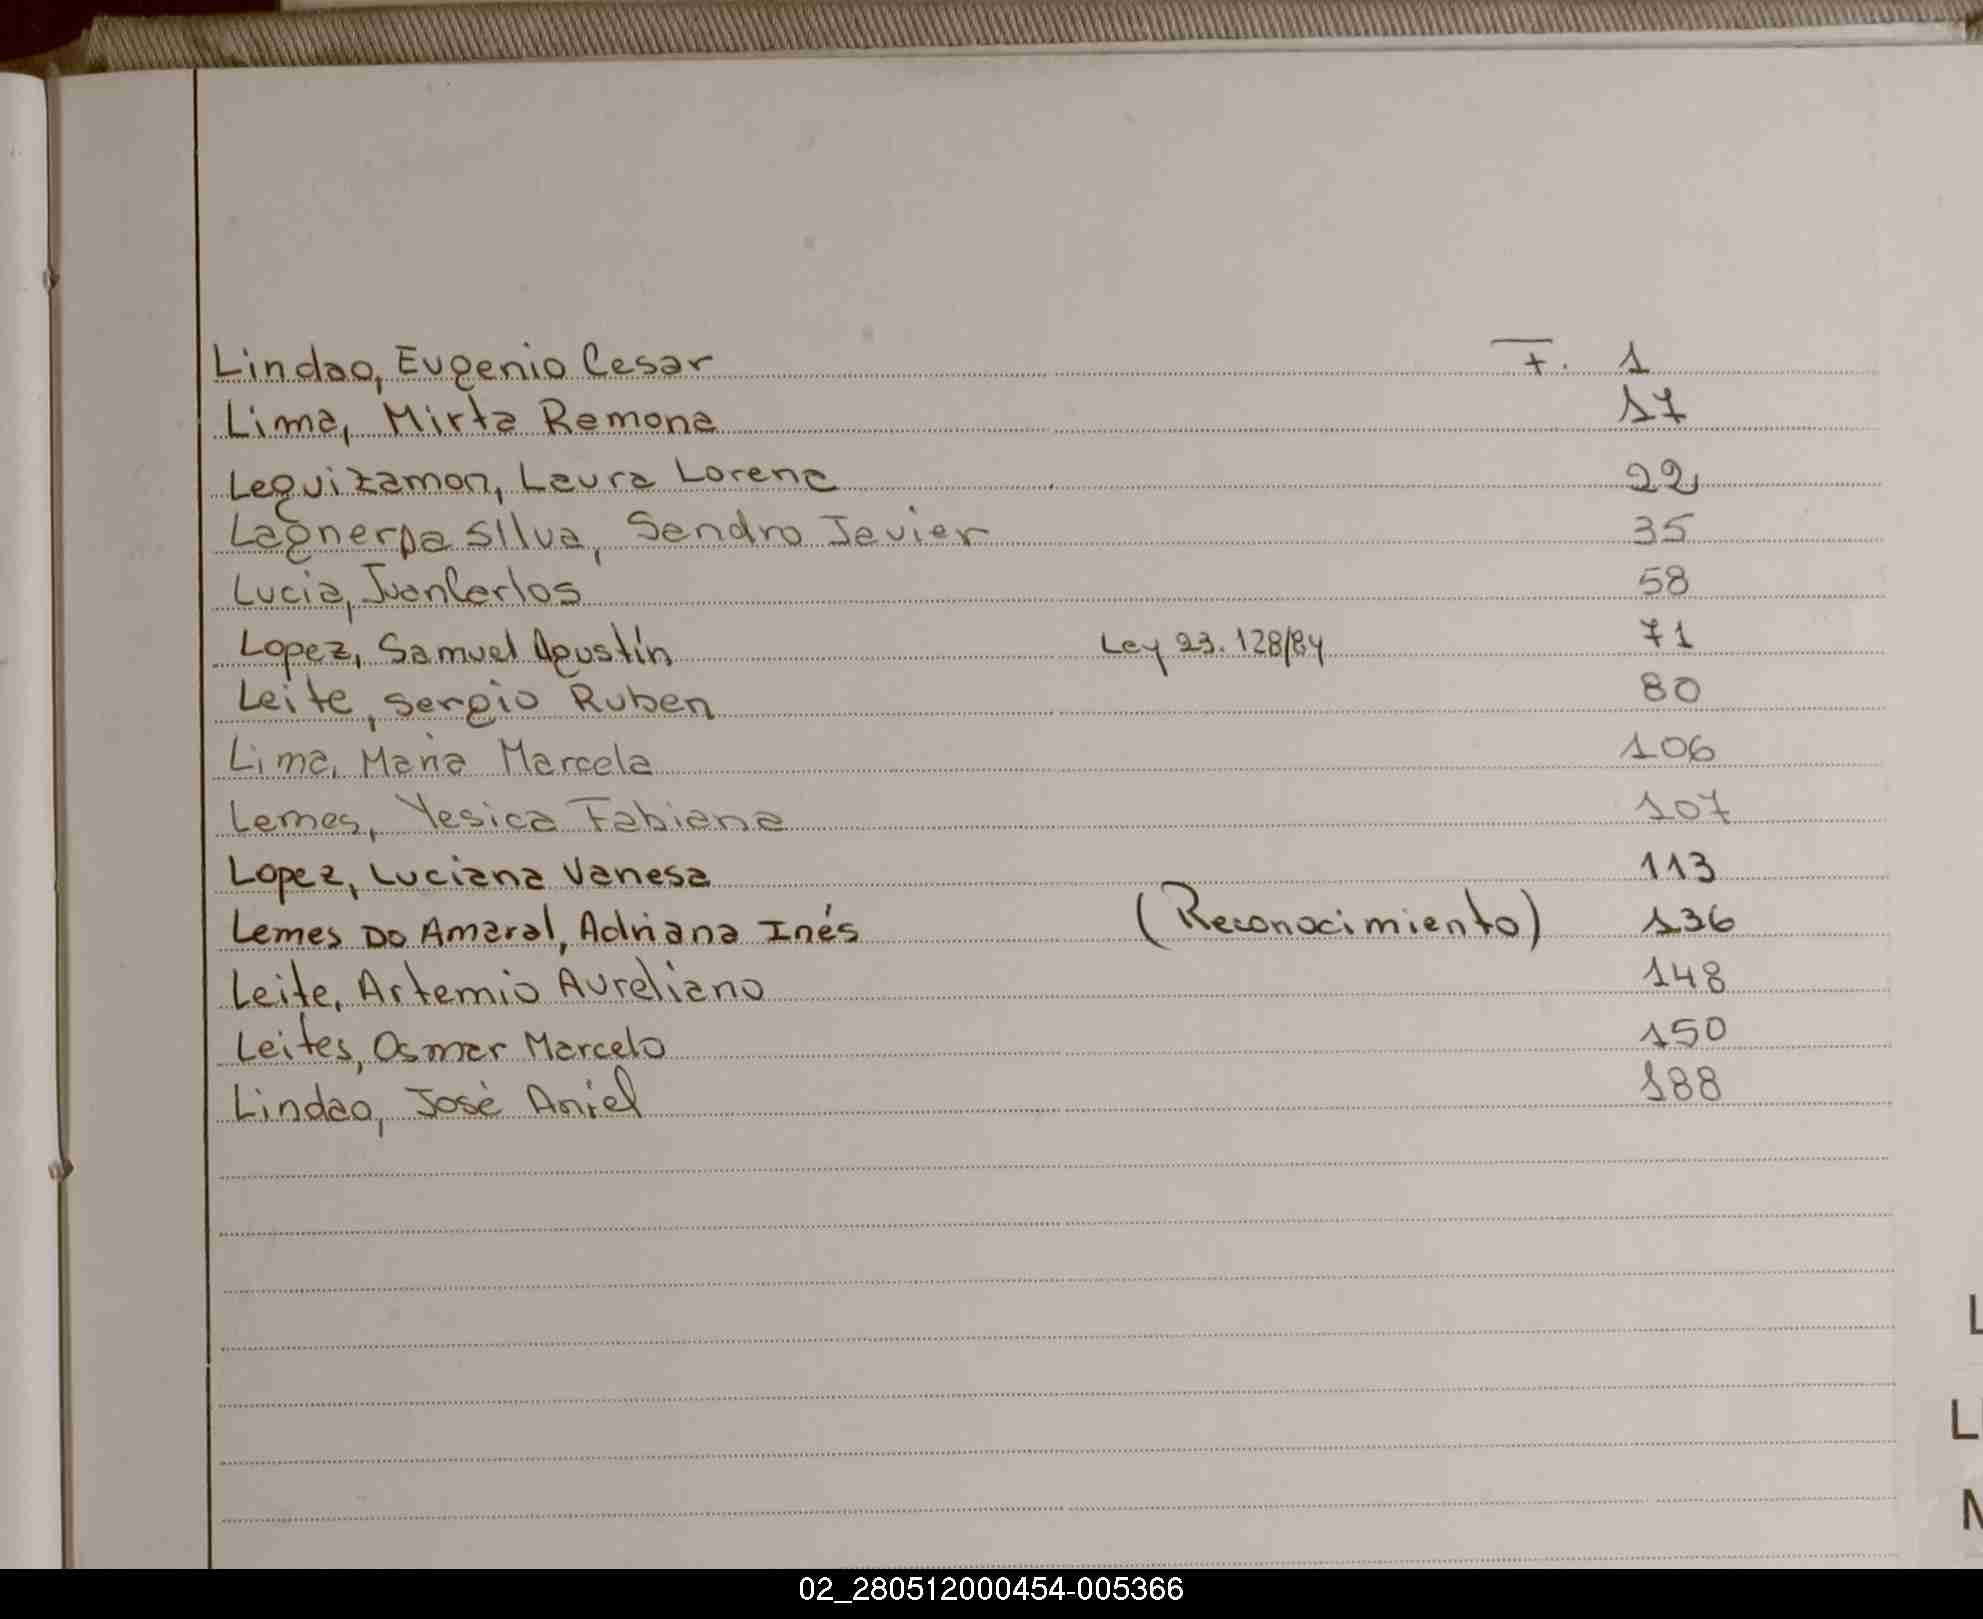 Lindao, Eugenio Cesar F. 1
Lima, Mirta Ramona 17
Leguizamon, Laura Lorena 22
Lagnerpa Silva, Sandro Javier 35
Lucia, Juan Carlos 58
Lopez, Samuel Agustín Ley 23.128/84 71
Leite, Sergio Ruben 80
Lima, Maria Marcela 106
Lemes, Yesica Fabiana 107
Lopez, Luciana Vanesa 113
Lemes Do Amaral, Adriana Inés (Reconocimiento) 136
Leite, Artemio Aureliano 148
Leites, Osmar Marcelo 150
Lindao, José Ariel 188
L
LL
02_280512000454-005366